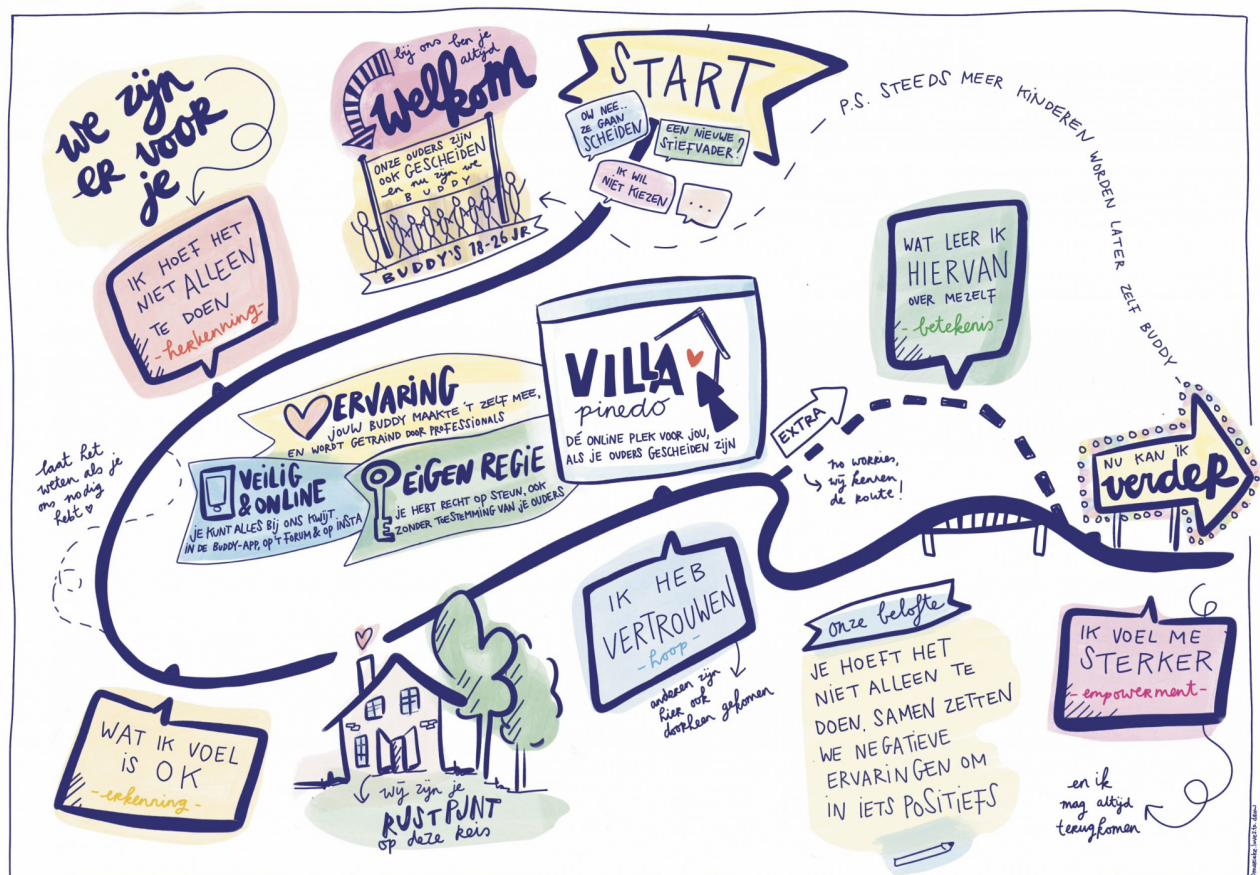 we zijn
er voor
je
bij ons ben je
altijd
welkom
ONZE OUDERS ZIJN
OOK GESCHEIDEN
en nu zijn we
BUDDY
BUDDY'S 18-26 JR
START
OW NEE..
ZE GAAN
SCHEIDEN
EEN NIEUWE
STIEFVADER?
IK WIL
NIET KIEZEN
...
P.S. STEEDS MEER KINDEREN WORDEN LATER ZELF BUDDY
IK HOEF HET
NIET ALLEEN
TE DOEN
-herkenning-
WAT LEER IK
HIERVAN
OVER MEZELF
-betekenis-
VILLA
pinedo
DÉ ONLINE PLEK VOOR JOU,
ALS JE OUDERS GESCHEIDEN ZIJN
ERVARING
JOUW BUDDY MAAKTE 'T ZELF MEE,
EN WORDT GETRAIND DOOR PROFESSIONALS
VEILIG
& ONLINE
JE KUNT ALLES BIJ ONS KWIJT
IN DE BUDDY-APP, OP 'T FORUM & OP INSTA
EIGEN REGIE
JE HEBT RECHT OP STEUN, OOK
ZONDER TOESTEMMING VAN JE OUDERS
EXTRA
no worries,
wij kennen
de route!
NU KAN IK
verder
laat het
weten als je
ons nodig
hebt
WAT IK VOEL
IS OK
-erkenning-
wij zijn je
RUSTPUNT
op deze reis
IK HEB
VERTROUWEN
-hoop-
anderen zijn
hier ook
doorheen gekomen
onze belofte
JE HOEFT HET
NIET ALLEEN TE
DOEN. SAMEN ZETTEN
WE NEGATIEVE
ERVARINGEN OM
IN IETS POSITIEFS
IK VOEL ME
STERKER
-empowerment-
en ik
mag altijd
terugkomen